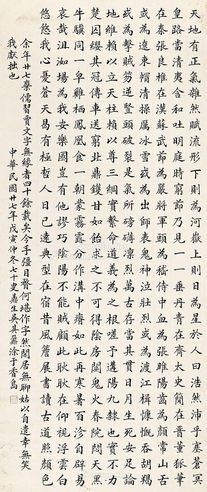 天地有正氣雜然賦流形下則為河嶽上則為日星於人曰浩然沛乎塞蒼冥
皇路當清夷含和吐明庭時窮節乃見一一垂丹青在齊太史簡在晉董狐筆
在秦張良椎在漢蘇武節為嚴將軍頭為嵇侍中血為張睢陽齒為顏常山舌
或為遼東帽清操厲冰雪或為出師表鬼神泣壯烈或為渡江楫慷慨吞胡羯
或為擊賊笏逆豎頭破裂是氣所磅礴凜烈萬古存當其貫日月生死安足論
地維賴以立天柱賴以尊三綱實繫命道義為之根嗟予遘陽九隸也實不力
楚囚纓其冠傳車送窮北鼎鑊甘如飴求之不可得陰房闃鬼火春院閟天黑
牛驥同一皁雞棲鳳凰食一朝蒙霧露分作溝中瘠如此再寒暑百沴自辟易
哀哉沮洳場為我安樂國豈有他謬巧陰陽不能賊顧此耿耿在仰視浮雲白
悠悠我心憂蒼天曷有極哲人日已遠典型在宿昔風簷展書讀古道照顏色
余年廿七棄儒習賈文字無緣者四十餘載矣今手彊目瞀何堪作字然閒居無聊姑以自遣幸無笑
我獻拙也
中華民國廿七年戊寅仲冬七十叟嘉生吳其蘇涂于香島